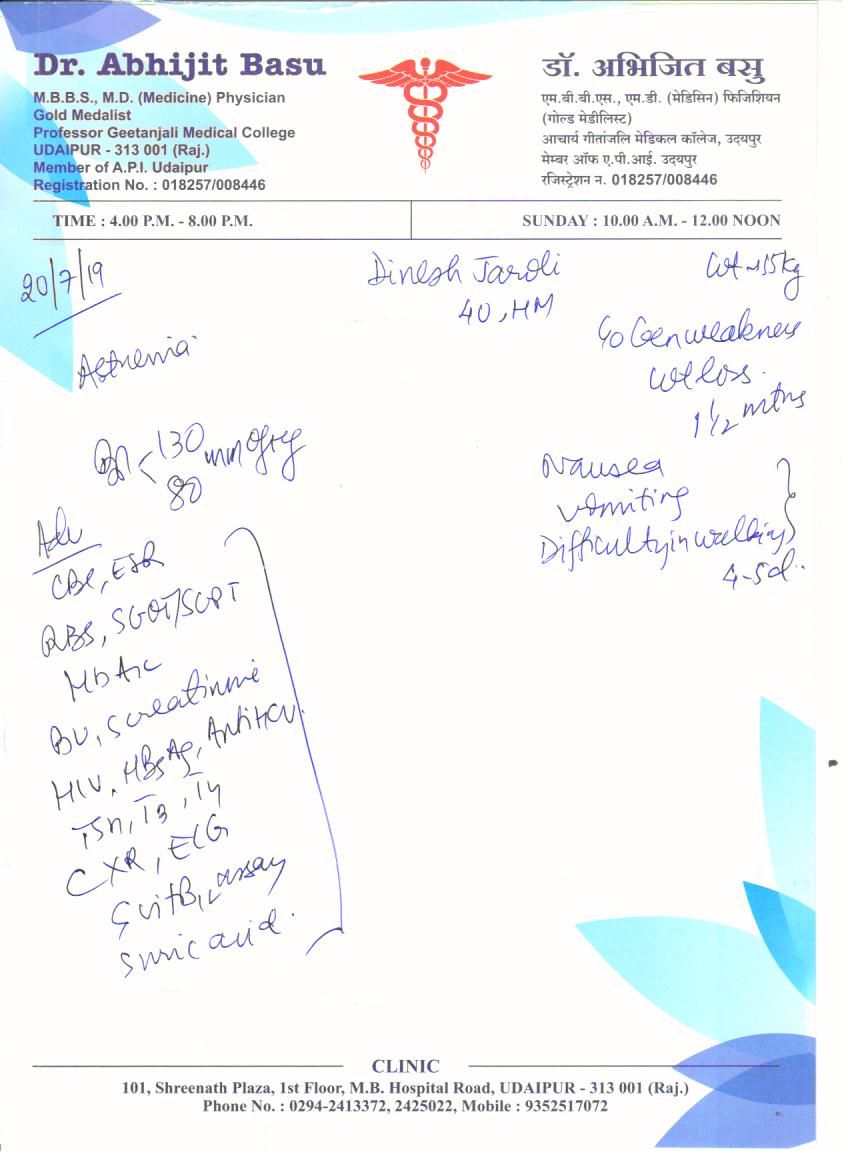 Dr. Abhijit Basu
M.B.B.S., M.D. (Medicine) Physician
Gold Medalist
Professor Geetanjali Medical College
UDAIPUR - 313 001 (Raj.)
Member of A.P.I. Udaipur
Registration No. : 018257/008446
डॉ. अभिजित बसु
एम.बी.बी.एस., एम.डी. (मेडिसिन) फिजिशियन
(गोल्ड मेडीलिस्ट)
आचार्य गीतांजलि मेडिकल कॉलेज, उदयपुर
मेम्बर ऑफ ए.पी.आई. उदयपुर
रजिस्ट्रेशन न. 018257/008446
TIME : 4.00 P.M. - 8.00 P.M.
SUNDAY : 10.00 A.M. - 12.00 NOON
20/7/19
Dinesh Jaroli
40, HM
Wt
Gen weakness
wt loss.
1 1/2 mths
Nausea
Vomiting
Difficulty in walking
4-5d.
Asthenia
130
mm of Hg
80
Adv
CBC, ESR
RBS, SGOT/SGPT
HbA1c
BU, S creatinine
HIV, HBsAg, Anti HCV
TSH, T3, T4
CXR, ECG
S vit B12 assay
S uric acid.
CLINIC
101, Shreenath Plaza, 1st Floor, M.B. Hospital Road, UDAIPUR - 313 001 (Raj.)
Phone No. : 0294-2413372, 2425022, Mobile : 9352517072